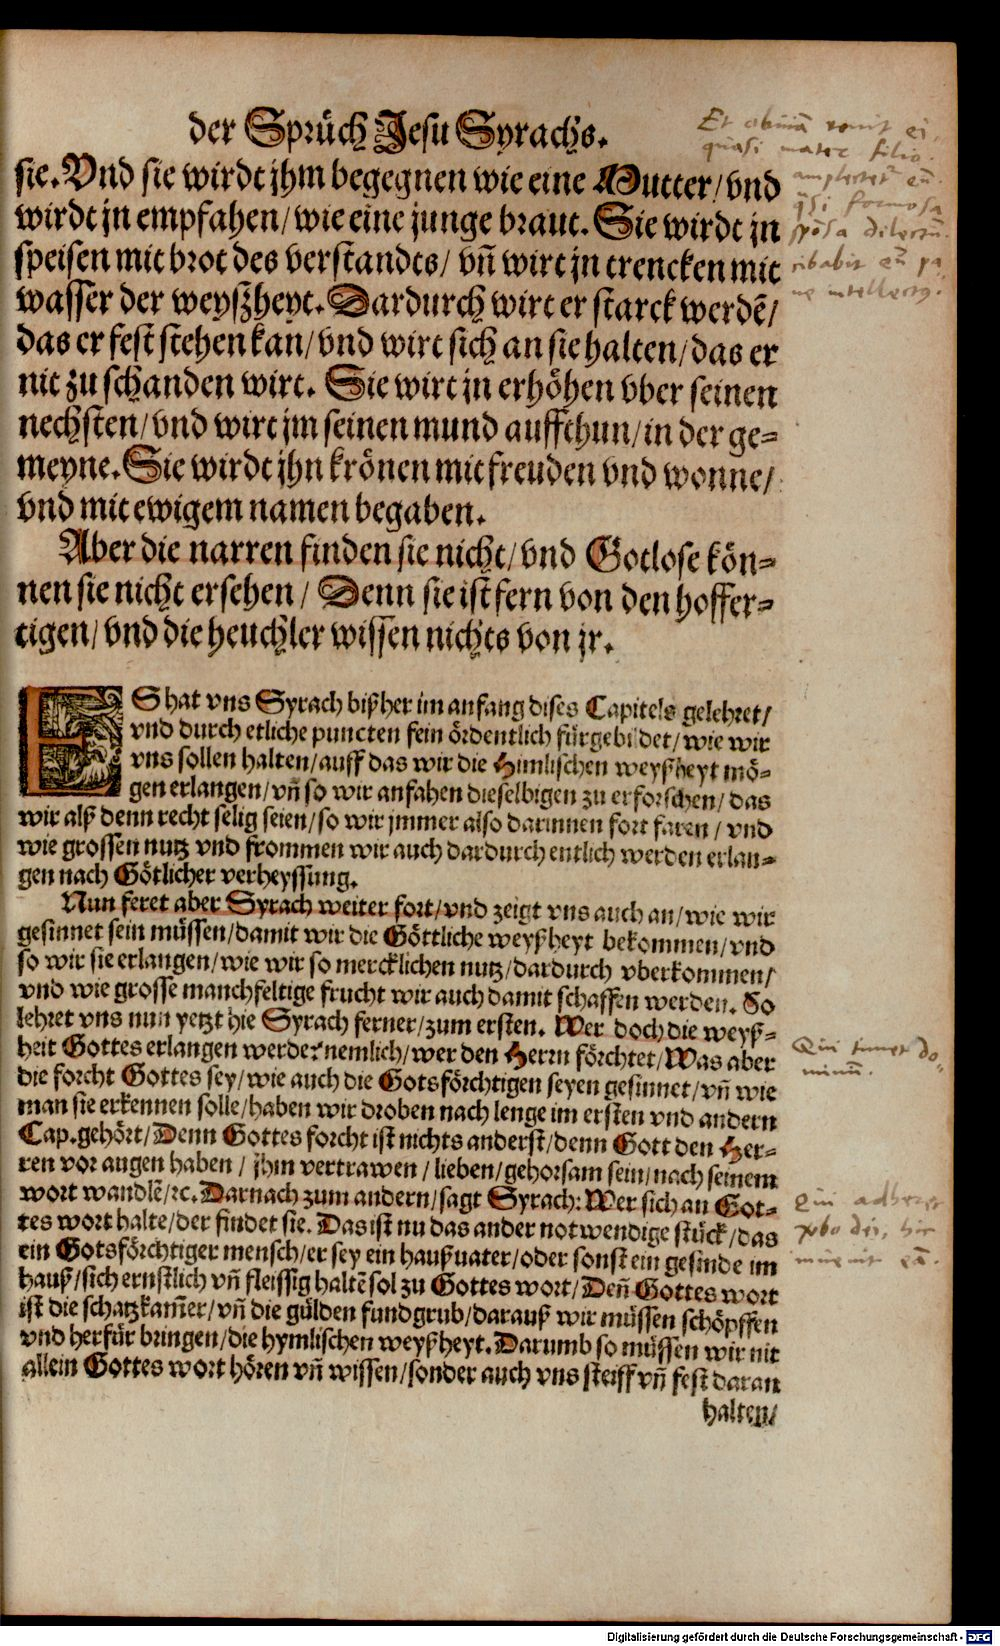 der Sprüch Jesu Syrachs.
sie. Vnd sie wirdt jhm begegnen wie eine Mutter/ vnd
wirdt jn empfahen/ wie eine junge braut. Sie wirdt jn
speisen mit brot des verstandts/ vn̄ wirt jn trencken mit
wasser der weyßheyt. Dardurch wirt er starck werdē/
das er fest stehen kan/ vnd wirt sich an sie halten/ das er
nit zu schanden wirt. Sie wirt jn erhöhen vber seinen
nechsten/ vnd wirt jm seinen mund auffthun/ in der ge-
meyne. Sie wirdt jhn krönen mit freuden vnd wonne/
vnd mit ewigem namen begaben.
Aber die narren finden sie nicht/ vnd Gotlose kön-
nen sie nicht ersehen/ Denn sie ist fern von den hoffer-
tigen/ vnd die heuchler wissen nichts von jr.
ES hat vns Syrach bißher im anfang dises Capitels gelehret/
vnd durch etliche puncten fein ördentlich fürgebildet/ wie wir
vns sollen halten/ auff das wir die Himlischen weyßheyt mö-
gen erlangen/ vn̄ so wir anfahen dieselbigen zu erforschen/ das
wir alß denn recht selig seien/ so wir jmmer also darinnen fort faren/ vnd
wie grossen nutz vnd frommen wir auch dardurch entlich werden erlan-
gen nach Götlicher verheyssung.
Nun feret aber Syrach weiter fort/ vnd zeigt vns auch an/ wie wir
gesinnet sein müssen/ damit wir die Göttliche weyßheyt bekommen/ vnd
so wir sie erlangen/ wie wir so mercklichen nutz/ dardurch vberkommen/
vnd wie grosse manchfeltige frucht wir auch damit schaffen werden. So
lehret vns nun yetzt hie Syrach ferner/ zum ersten. Wer doch die weyß-
heit Gottes erlangen werde: nemlich/ wer den Herrn förchtet/ Was aber
die forcht Gottes sey/ wie auch die Gotsförchtigen seyen gesinnet/ vn̄ wie
man sie erkennen solle/ haben wir droben nach lenge im ersten vnd andern
Cap. gehört/ Denn Gottes forcht ist nichts anderst/ denn Gott den Her-
ren vor augen haben/ jhm vertrawen/ lieben/ gehorsam sein/ nach seinem
wort wandlē/ ꝛc. Darnach zum andern/ sagt Syrach: Wer sich an Got-
tes wort halte/ der findet sie. Das ist nu das ander notwendige stück/ das
ein Gotsförchtiger mensch/ er sey ein haußuater/ oder sonst ein gesinde im
hauß/ sich ernstlich vn̄ fleissig haltē sol zu Gottes wort/ Den̄ Gottes wort
ist die schatzkam̄er/ vn̄ die gülden fundgrub/ darauß wir müssen schöpffen
vnd herfür bringen/ die hymlischen weyßheyt. Darumb so müssen wir nit
allein Gottes wort hören vn̄ wissen/ sonder auch vns steiff vn̄ fest daran
halten/
Et obuiā venit ei
quasi mater filio.
amplectet' eū
q̄si formosa
spōsa dilectū.
cibabit eū pa
ne intellectus.
Qui timet do-
minū.
Qui adheret
verbo dei, hic
inuenit eā.
Digitalisierung gefördert durch die Deutsche Forschungsgemeinschaft - DFG